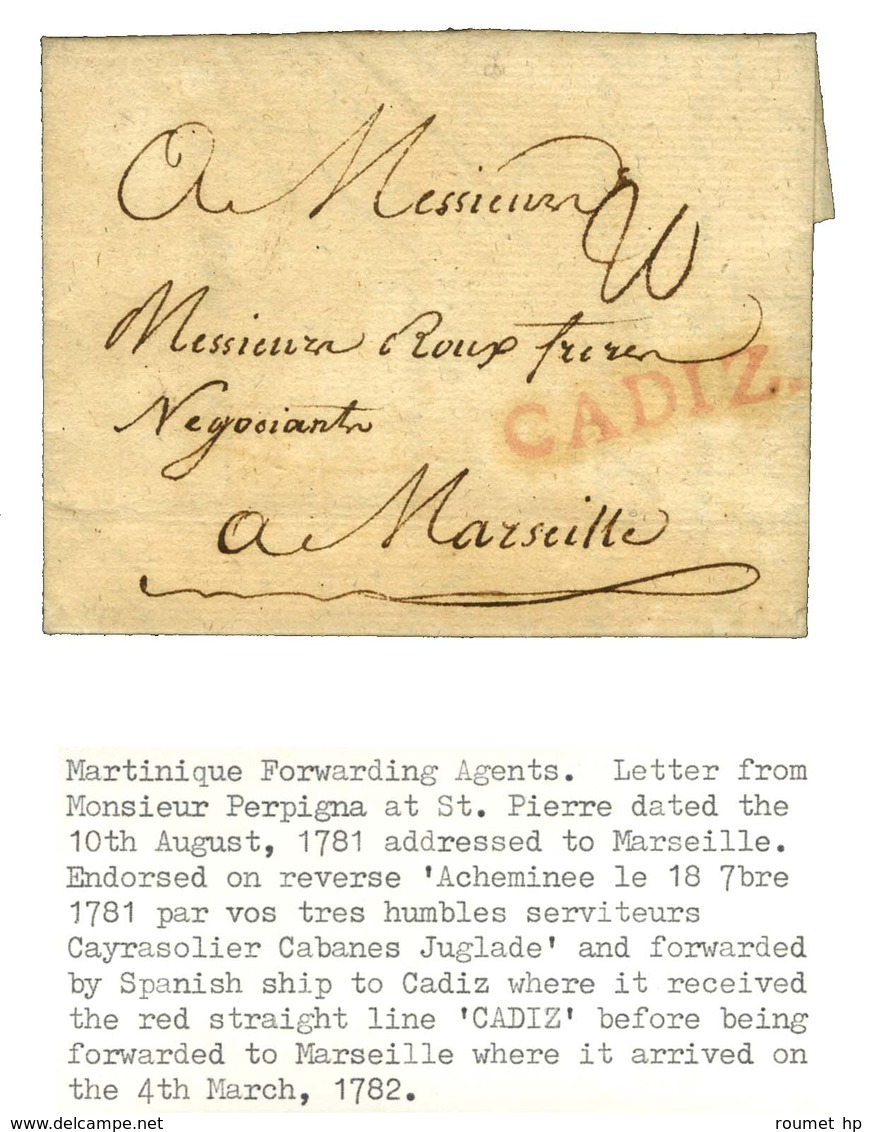 A Messieurs
Messieurs Roux freres
CADIZ
Negociants
a Marseille
Martinique Forwarding Agents. Letter from
Monsieur Perpigna at St. Pierre dated the
10th August, 1781 addressed to Marseille.
Endorsed on reverse 'Acheminee le 18 7bre
1781 par vos tres humbles serviteurs
Cayrasolier Cabanes Juglade' and forwarded
by Spanish ship to Cadiz where it received
the red straight line 'CADIZ' before being
forwarded to Marseille where it arrived on
the 4th March, 1782.
www.delcampe.net
roumet hp